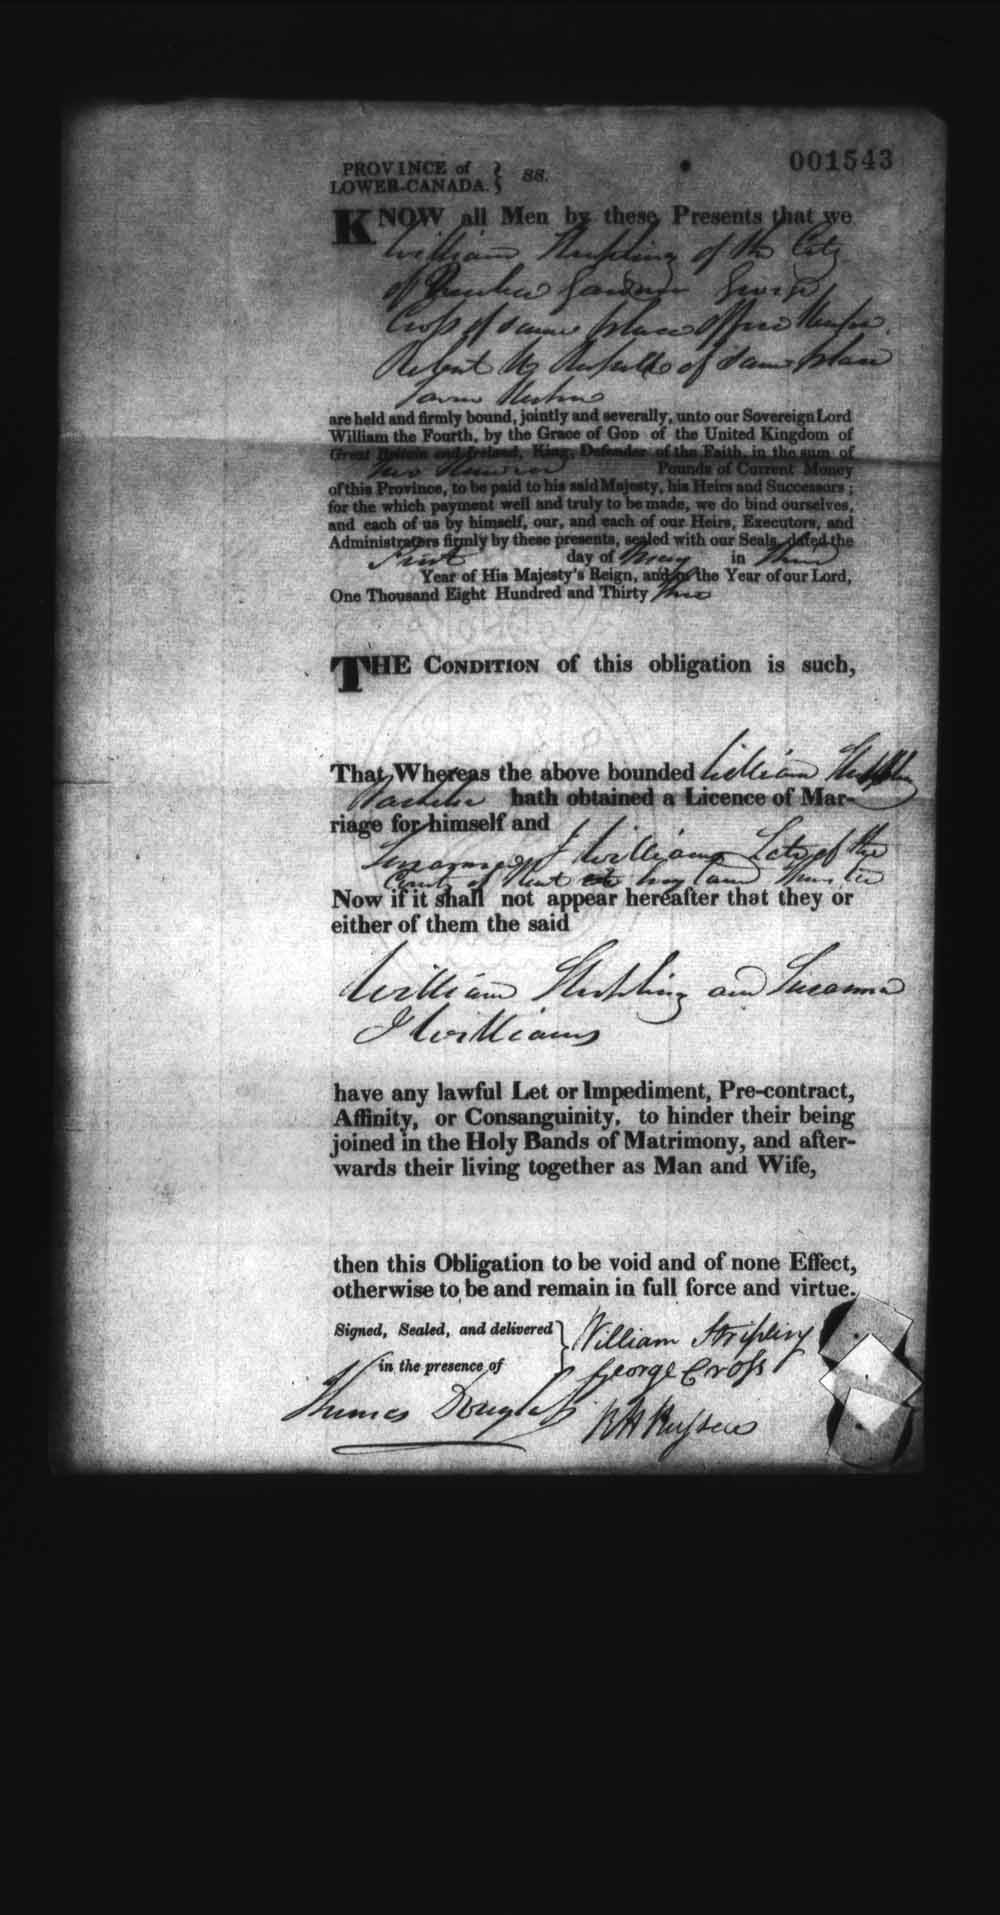 001543
PROVINCE of
LOWER-CANADA. } SS.
KNOW all Men by these Presents that we
William Stripling of the City
of Quebec George
Cross of same place office Keeper
Robert H. Russell of same place
are held and firmly bound, jointly and severally, unto our Sovereign Lord
William the Fourth, by the Grace of GOD of the United Kingdom of
Great Britain and Ireland, King, Defender of the Faith, in the sum of
Two Hundred Pounds of Current Money
of this Province, to be paid to his said Majesty, his Heirs and Successors ;
for the which payment well and truly to be made, we do bind ourselves,
and each of us by himself, our, and each of our Heirs, Executors, and
Administrators firmly by these presents, sealed with our Seals, dated the
First day of May in Third
Year of His Majesty's Reign, and in the Year of our Lord,
One Thousand Eight Hundred and Thirty three
THE CONDITION of this obligation is such,
That Whereas the above bounded William Stripling
Bachelor hath obtained a Licence of Mar-
riage for himself and
Susanna J Williams Late of the
County of Kent
Now if it shall not appear hereafter that they or
either of them the said
William Stripling and Susanna
J Williams
have any lawful Let or Impediment, Pre-contract,
Affinity, or Consanguinity, to hinder their being
joined in the Holy Bands of Matrimony, and after-
wards their living together as Man and Wife,
then this Obligation to be void and of none Effect,
otherwise to be and remain in full force and virtue.
Signed, Sealed, and delivered } William Stripling
in the presence of George Cross
Thomas Douglass R H Russell